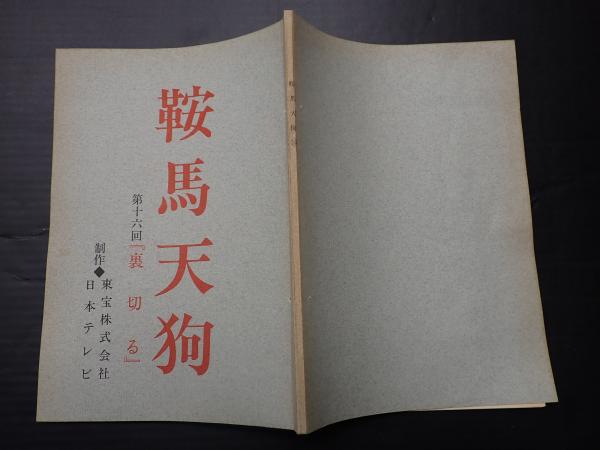 鞍馬天狗
第十六回『裏切る』
制作◆東宝株式会社
日本テレビ
鞍馬天狗